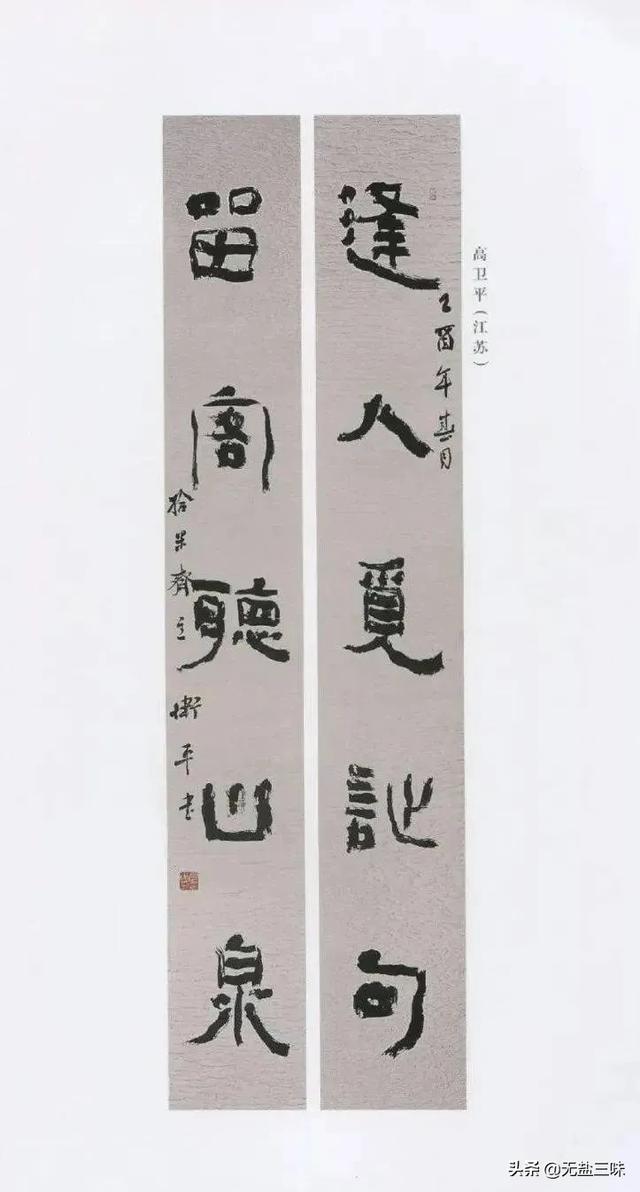 高卫平（江苏）
逢人覓詩句
乙酉年春月
留客聽山泉
齋主 衛平書
头条 @无盐三味